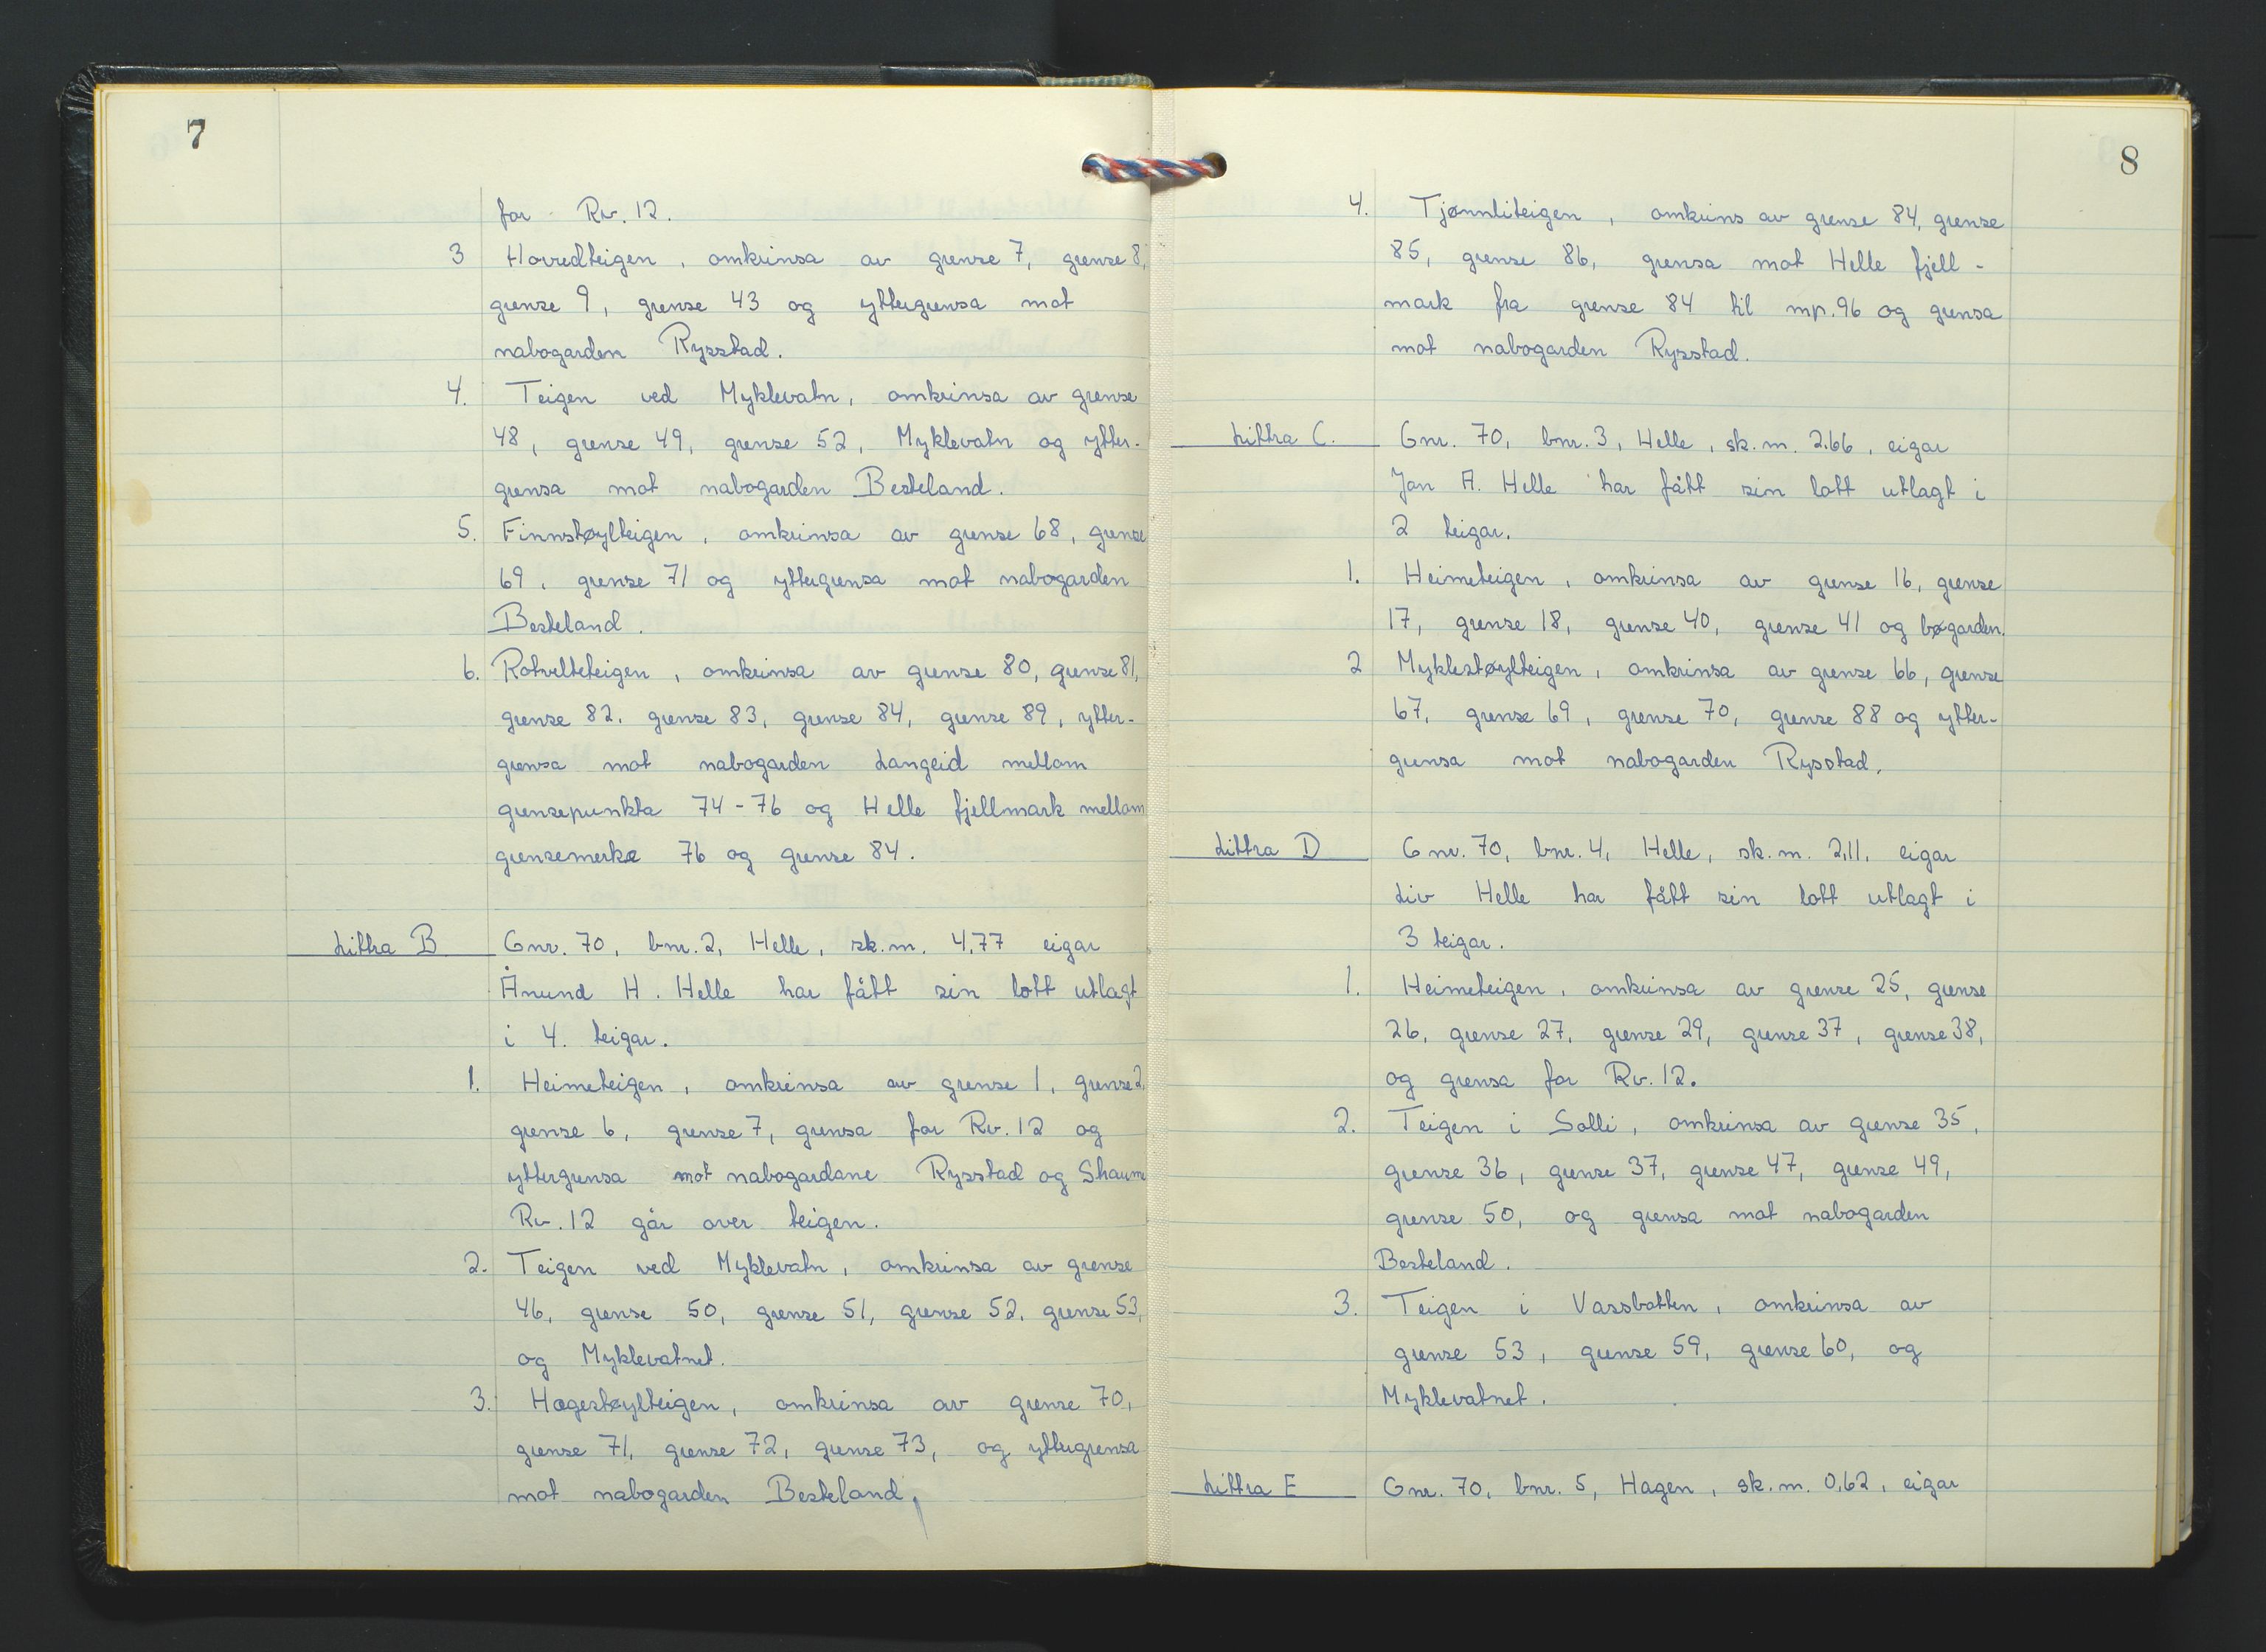 7
for Rv. 12.
3 Hovedteigen, omkrinsa av grense 7, grense 8,
grense 9, grense 43 og yttergrensa mot
nabogarden Rysstad.
4. Teigen ved Myklevatn, omkrinsa av grense
48, grense 49, grense 52, Myklevatn og ytter-
grensa mot nabogarden Besteland.
5. Finnstøylteigen, omkrinsa av grense 68, grense
69, grense 71 og yttergrensa mot nabogarden
Besteland.
6. Rotvelteteigen, omkrinsa av grense 80, grense 81,
grense 82, grense 83, grense 84, grense 89, ytter-
grensa mot nabogarden Langeid mellom
grensepunkta 74-76 og Helle fjellmark mellom
grensemerke 76 og grense 84.
Littra B Gnr. 70, bnr. 2, Helle, sk.m. 4,77 eigar
Ånund H. Helle har fått sin lott utlagt
i 4. teigar.
1. Heimeteigen, omkrinsa av grense 1, grense 2,
grense 6, grense 7, grensa for Rv. 12 og
yttergrensa mot nabogardane Rysstad og
Rv. 12 går over teigen.
2. Teigen ved Myklevatn, omkrinsa av grense
46, grense 50, grense 51, grense 52, grense 53,
og Myklevatnet.
3. Hagestøylteigen, omkrinsa av grense 70,
grense 71, grense 72, grense 73, og yttergrensa
mot nabogarden Besteland,
8
4. Tjønnliteigen, omkrins av grense 84, grense
85, grense 86, grensa mot Helle fjell-
mark fra grense 84 til mp. 96 og grensa
mot nabogarden Rysstad.
Littra C. Gnr. 70, bnr. 3, Helle, sk.m. 2.66, eigar
Jon A. Helle har fått sin lott utlagt i
2 teigar.
1. Heimeteigen, omkrinsa av grense 16, grense
17, grense 18, grense 40, grense 41 og bøgarden.
2 Myklestøylteigen, omkrinsa av grense 66, grense
67, grense 69, grense 70, grense 88 og ytter-
grensa mot nabogarden Rysstad.
Littra D Gnr. 70, bnr. 4, Helle, sk.m. 2,11, eigar
Liv Helle har fått sin lott utlagt i
3 teigar.
1. Heimeteigen, omkrinsa av grense 25, grense
26, grense 27, grense 29, grense 37, grense 38,
og grensa for Rv. 12.
2. Teigen i Solli, omkrinsa av grense 35,
grense 36, grense 37, grense 47, grense 49,
grense 50, og grensa mot nabogarden
Besteland.
3. Teigen i Vassbotten, omkrinsa av
grense 53, grense 59, grense 60, og
Myklevatnet.
Littra E Gnr. 70, bnr. 5, Hagen, sk.m. 0,62, eigar